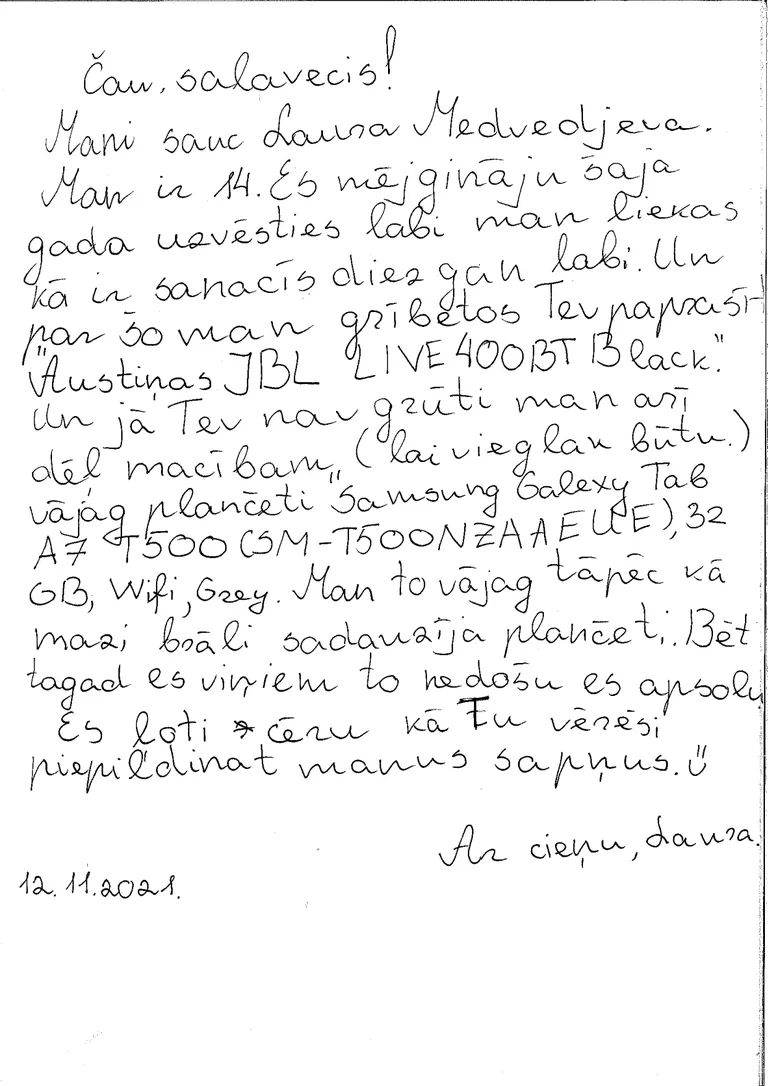 Čau, salavecis!
Mani sauc Laura Medvedjeva.
Man ir 14. Es mējģināju šajā
gada uzvēsties labi man liekas
kā ir sanācīs diezgan labi. Un
par šo man gribētos Tev paprasīt
"Austiņas JBL LIVE400BT Black".
Un jā Tev nav grūti man arī
dēļ macībam,, (lai vieglak būtu.)
vājag plančeti Samsung Galaxy Tab
A7 T500 (SM-T500NZAAEUE), 32
GB, Wifi, Grey. Man to vājag tāpēc kā
mazi brāli sadauzīja plančeti. Bēt
tagad es viņiem to nedošu es apsolu
Es loti cēru kā Tu vērēsi
piepildinat manus sapņus. ü
Ar cieņu, Laura.
12.11.2021.